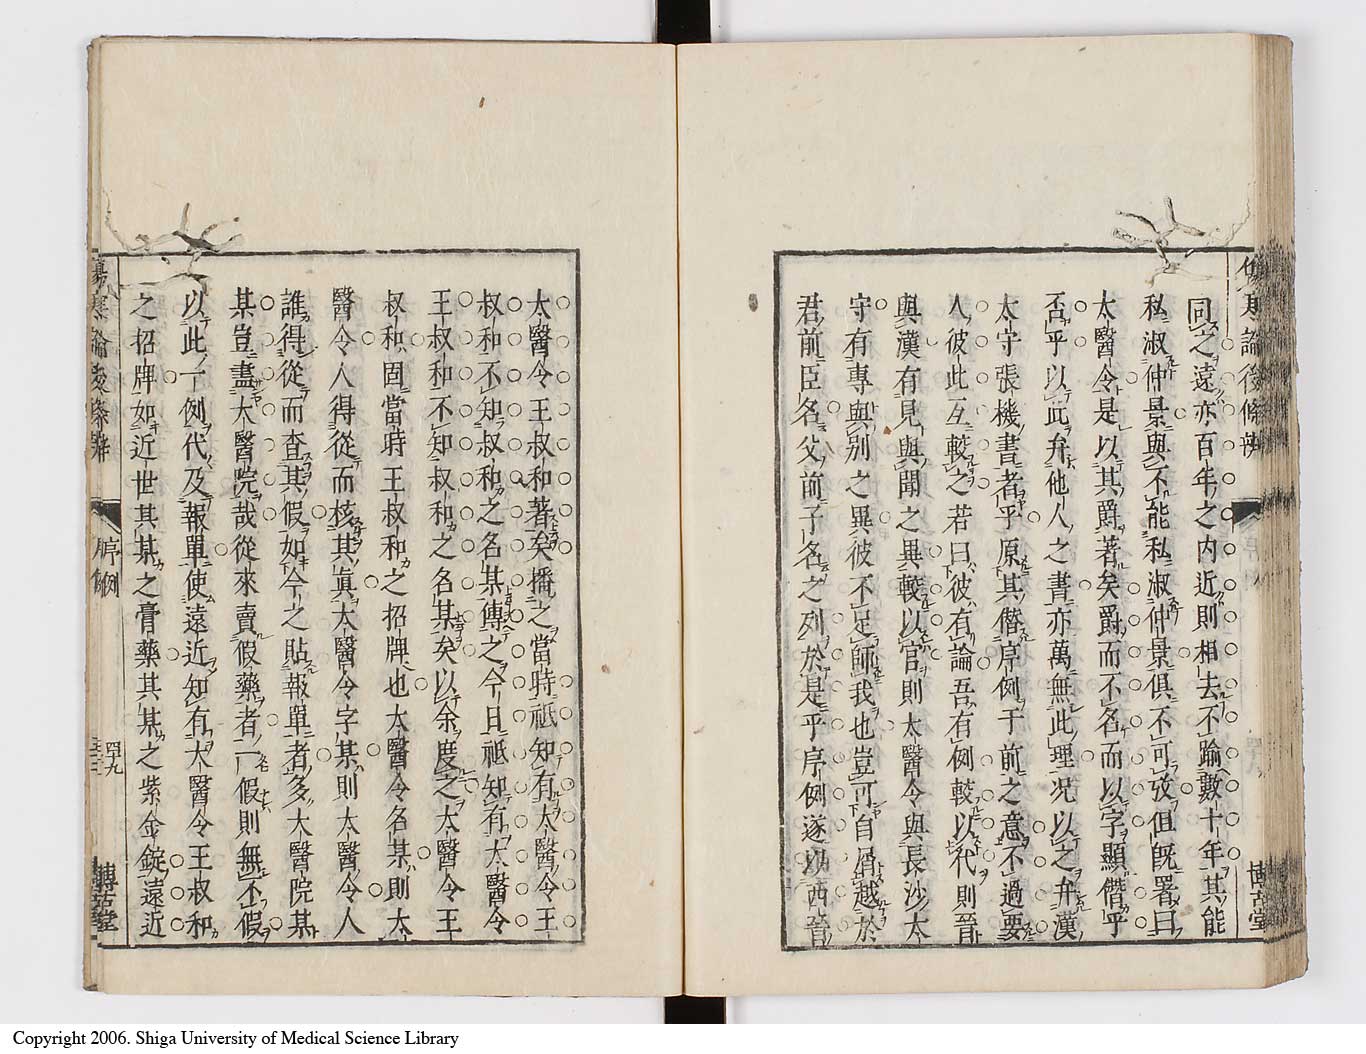 同之遠亦百年之内近則相去不踰數十年其能
私淑仲景與不能私淑仲景俱不可攷但既署曰
太醫令是以其爵著矣爵而不名而以字顯僭乎
否乎以此弁他人之書亦萬無此理况以之弁漢
太守張機書者乎原其僭序例于前之意不過要
人彼此互較之若曰彼有論吾有例較以代則晉
與漢有見與聞之異較以官則太醫令與長沙太
守有專與别之異彼不足師我也豈可自屑越於
君前臣名父前子名之列於是乎序例遂以西晉
太醫令王叔和著矣播之當時祇知有太醫令王
叔和不知叔和之名某傳之今日祗知有太醫令
王叔和不知叔和之名某矣以余度之太醫令王
叔和固當時王叔和之招牌也太醫令名某則太
醫令人得從而核其眞太醫令字某則太醫令人
誰得從而查其假如今之貼報單者多大醫院某
某豈盡太醫院哉從來賣假藥者一假則無不假
以此一例代及報單使遠近知有太醫令王叔和
之招牌如近世其某之膏藥其某之紫金錠遠近
傷寒論後條辨
序例
四十九
博古堂
Copyright 2006. Shiga University of Medical Science Library